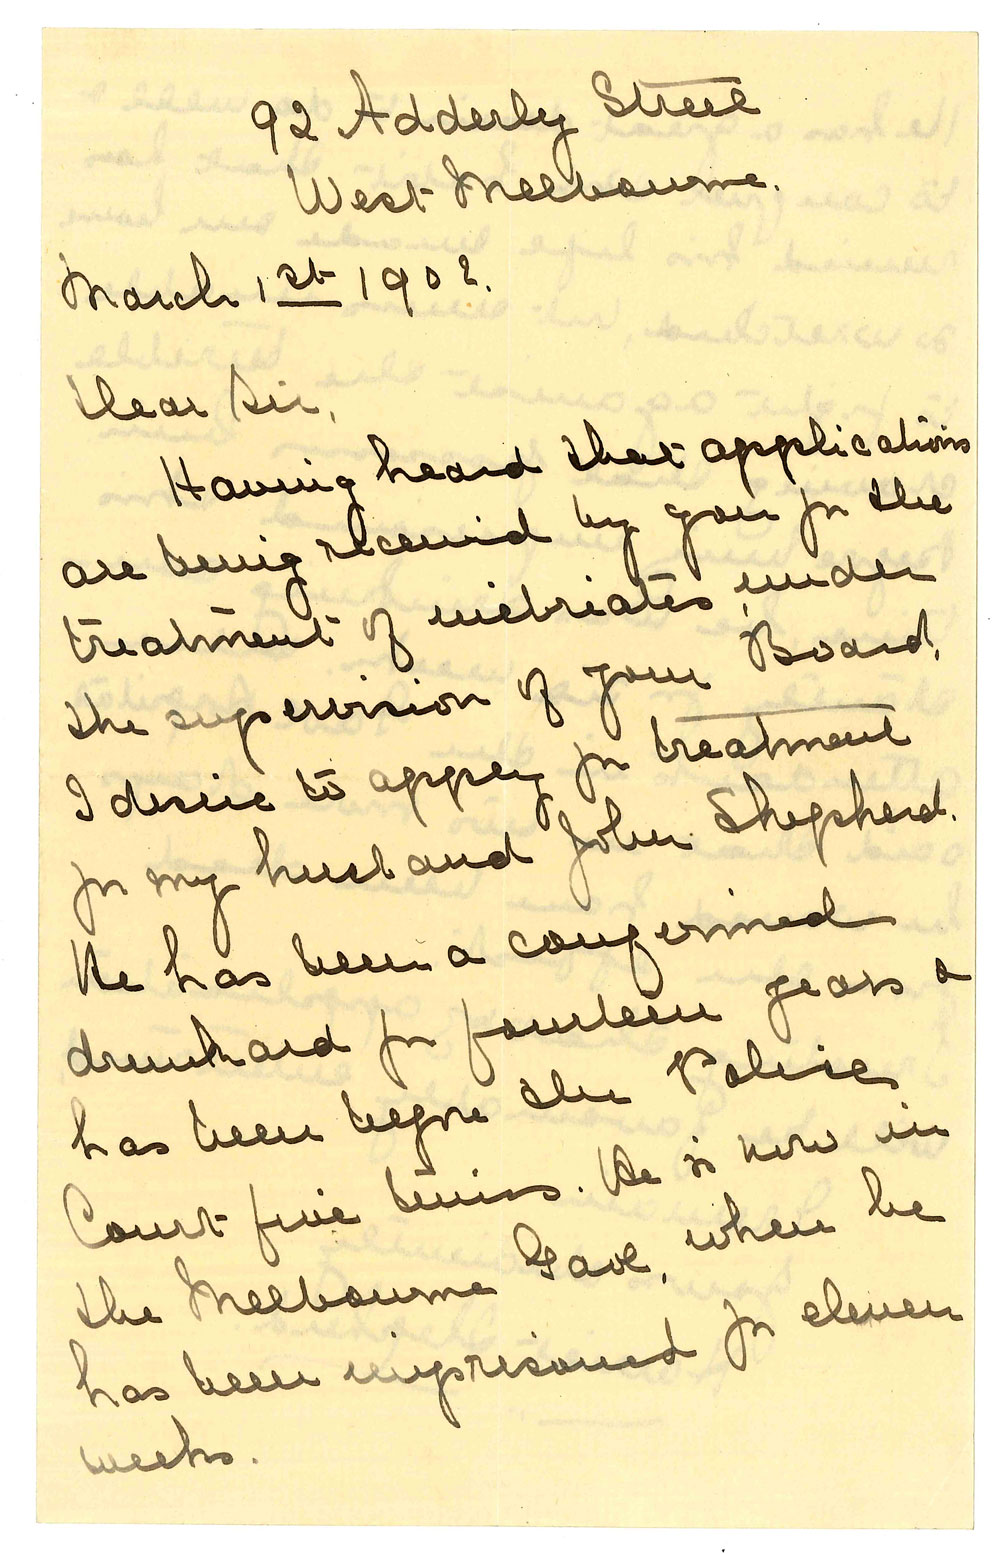 92 Adderly Street
West Melbourne.
March 1st 1902.
Dear Sir,
Having heard that applications
are being received by you for the
treatment of inebriates, under
the supervision of your Board,
I desire to apply for treatment
for my husband John Shepherd.
He has been a confirmed
drunkard for fourteen years &
has been before the Police
Court five times. He is now in
the Melbourne Gaol, where he
has been imprisoned for eleven
weeks.